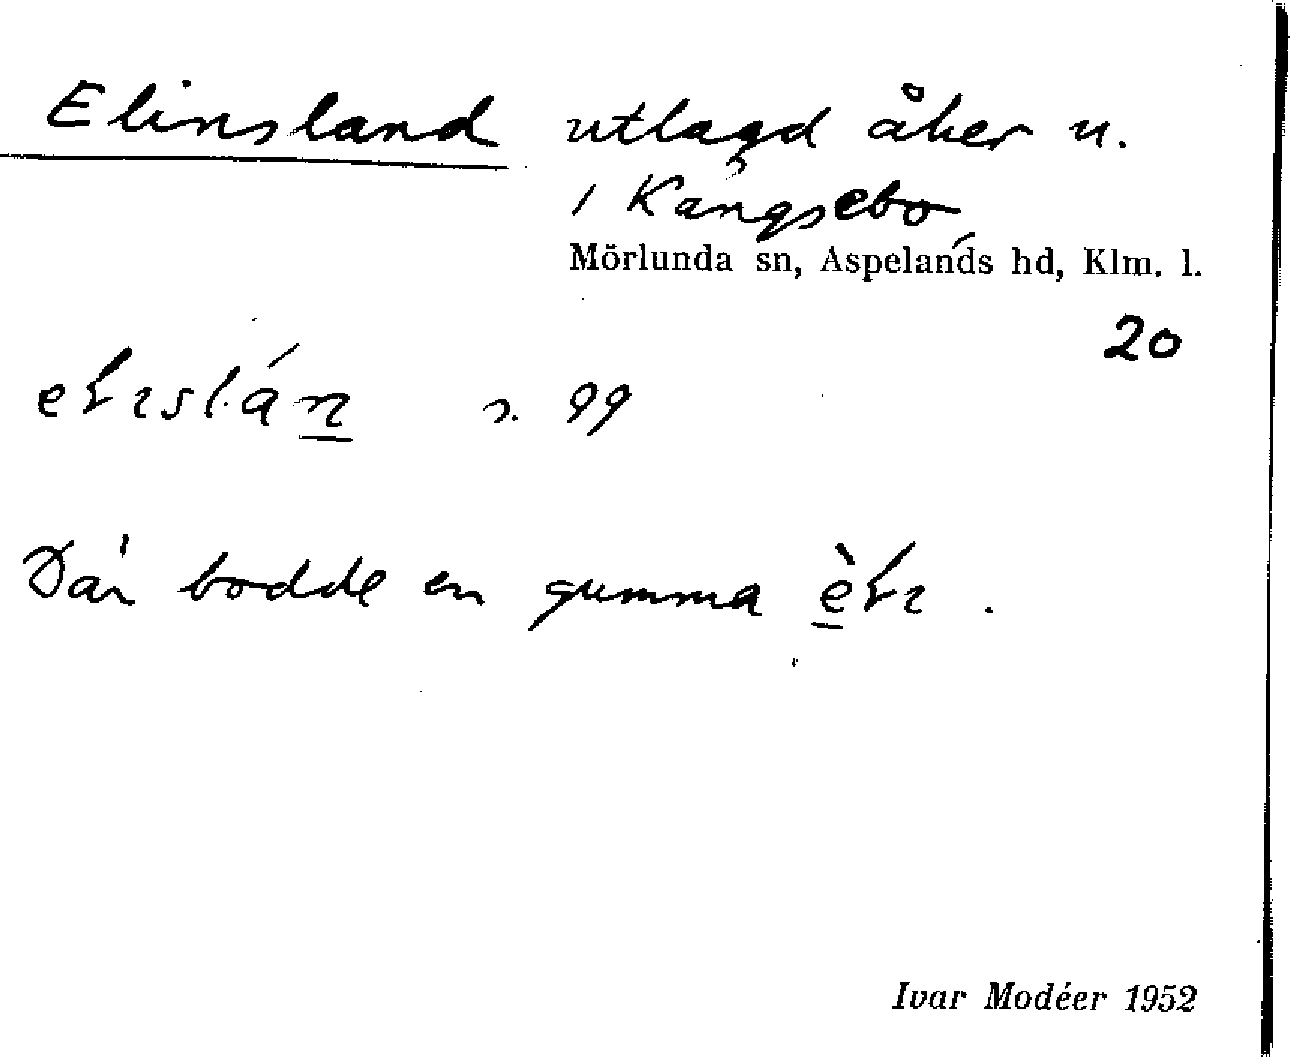 Elinsland utlagd åker n.
i Kängsebo
Mörlunda sn, Aspelands hd, Klm. l.
20
s. 99
Där bodde en gumma
Ivar Modéer 1952